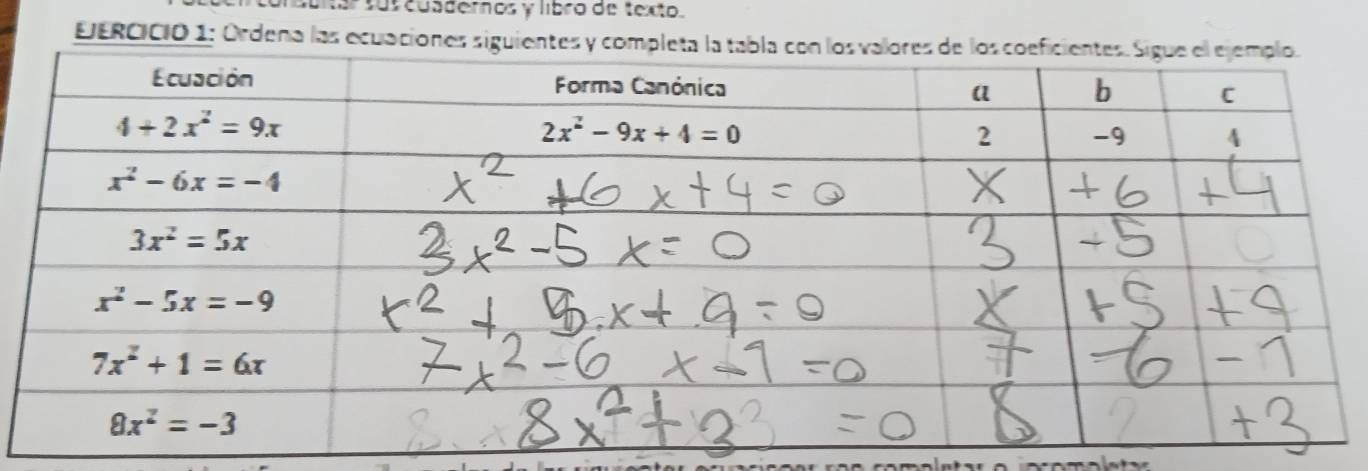 consultar sus cuadernos y libro de texto.
EJERCICIO 1: Ordena las ecuaciones siguientes y completa la tabla con los valores de los coeficientes. Sigue el ejemplo.
Ecuación Forma Canónica a b c
4 + 2x² = 9x 2x² - 9x + 4 = 0 2 -9 4
x² - 6x = -4 x² + 6x + 4 = 0 x +6 +4
3x² = 5x 3x² - 5x = 0 3 -5 0
x² - 5x = -9 x² + 5x + 9 = 0 x +5 +9
7x² + 1 = 6x 7x² - 6x - 1 = 0 7 -6 -1
8x² = -3 8x² + 3 = 0 8 +3